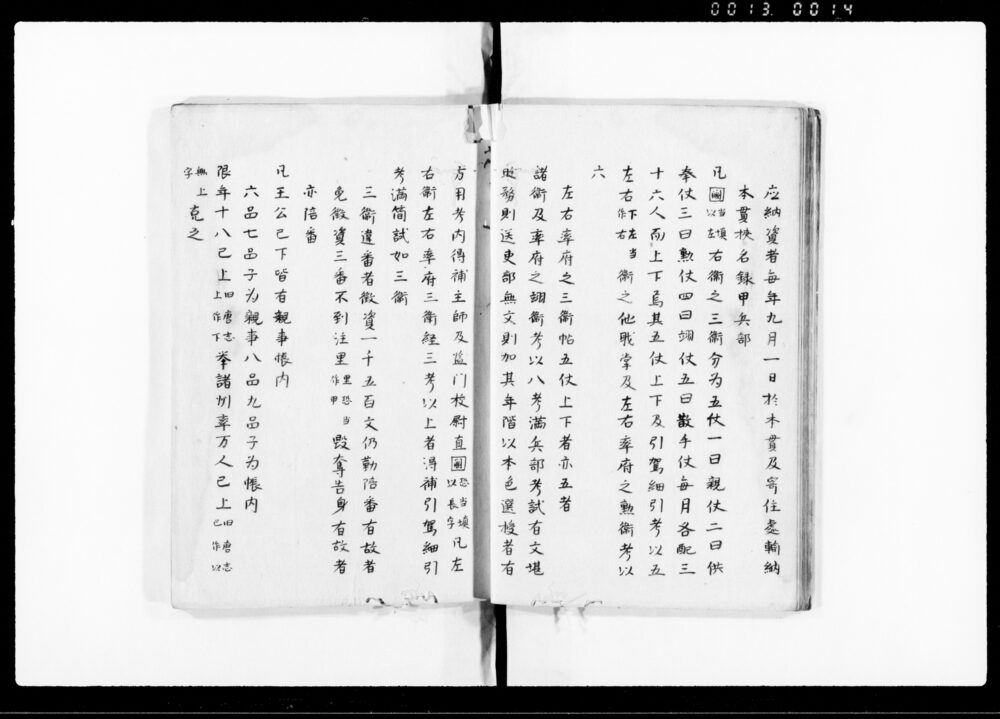 0013 0014
应納資者每年九月一日於本貫及寄住處輸納
本貫挾名錄甲兵部
凡國当填以左右衛之三衛分为五仗一曰親仗二曰供
奉仗三曰勲仗四曰翊仗五曰散手仗每月各配三
十六人而上下焉其五仗上下及引駕細引考以五
左右下左当作右衛之他職掌及左右率府之勲衛考以
六
左右率府之三衛帖五仗上下者亦五者
諸衛及率府之翊衛考以八考滿兵部考試有文堪
時務則送吏部無文則加其年階以本色選授者有
考内得補主師及监门校尉直國恐当填以長字凡左
右衛左右率府三衛経三考以上者得補引駕細引
考滿简試如三衛
三衛違番者徵資一千五百文仍勤陪番有故者
免徵資三番不到注里里恐当作甲毀奪告身有故者
亦陪番
凡王公已下皆有親事帳内
六品七品子为親事八品九品子为帳内
限年十八已上旧唐志上作下举諸州率万人已上旧唐志已作以
無上字充之